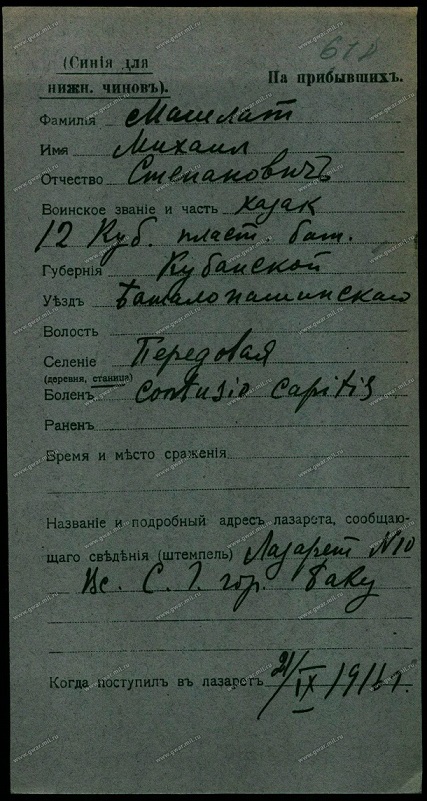 618
(Синія для
нижн. чиновъ).
На прибывшихъ.
Фамилія Машлат
Имя Михаил
Отчество Степановичъ
Воинское званіе и часть казак
12 Куб. пласт. бат.
Губернія Кубанской
Уѣздъ Баталопашинскаго
Волость
Селеніе Передовая
(деревня, станица)
Боленъ contusio capitis
Раненъ
Время и мѣсто сраженія
Названіе и подробный адресъ лазарета, сообщаю-
щаго свѣдѣнія (штемпель) Лазарет N10
Вс. С. Г. гор. Баку
Когда поступилъ въ лазаретъ 21/IX 1916 г.
www.gwar.mil.ru